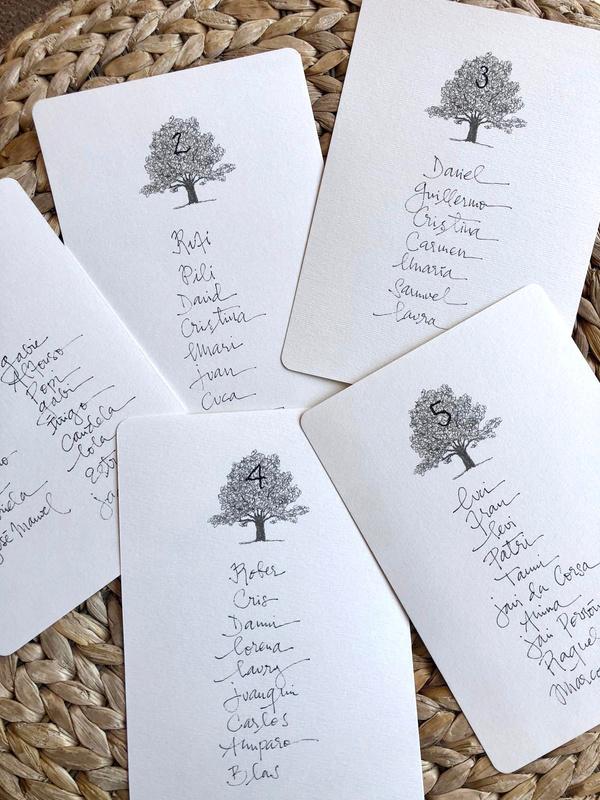 2
Rufi
Pili
David
Cristina
Mari
Juan
Cuca
3
Daniel
Guillermo
Cristina
Carmen
María
Samuel
Laura
Gabi
Alfonso
Popi
Gabi
Íñigo
Candela
Lola
José Manuel
4
Rober
Cris
Danni
Lorena
Laury
Juanqui
Carlos
Amparo
Blas
5
Luci
Fran
Levi
Patri
Tanni
Javi da Corsa
Anina
Raquel
Marco